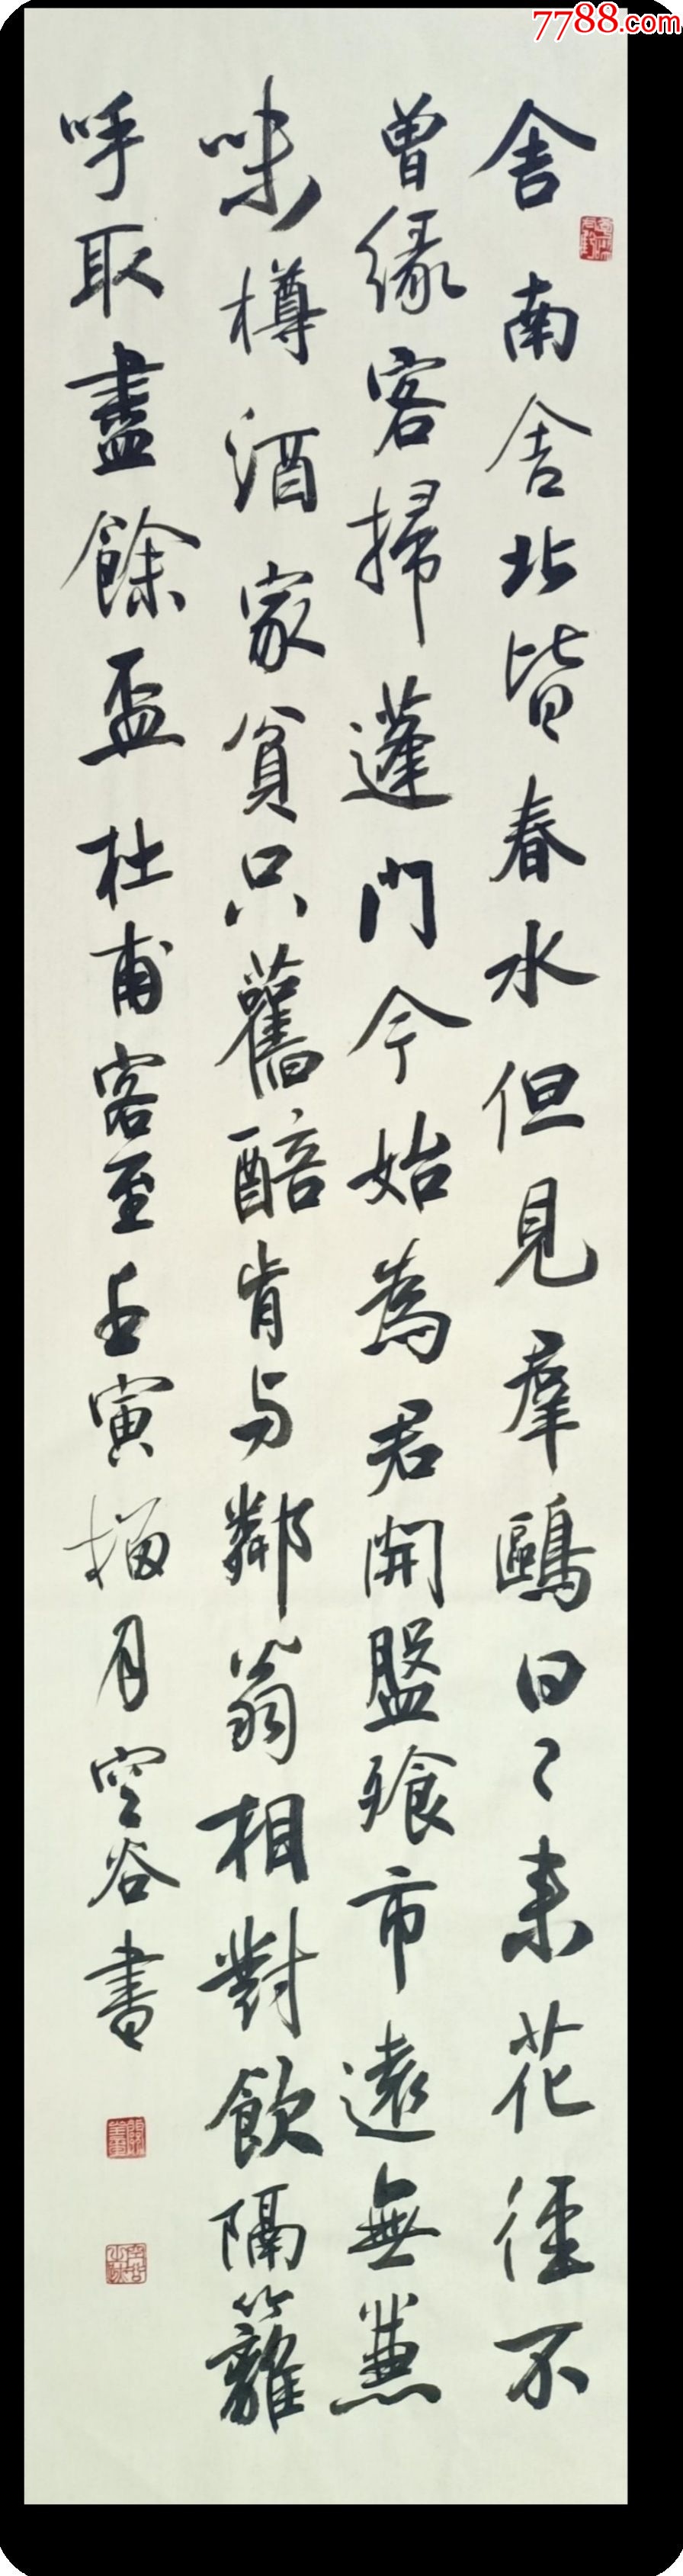 7788.com
舍南舍北皆春水但見羣鷗日々来花徑不
曾緣客掃蓬門今始為君開盤飧市遠無兼
味樽酒家貧只舊醅肯与鄰翁相對飲隔籬
呼取盡餘盃 杜甫客至壬寅榴月空谷書